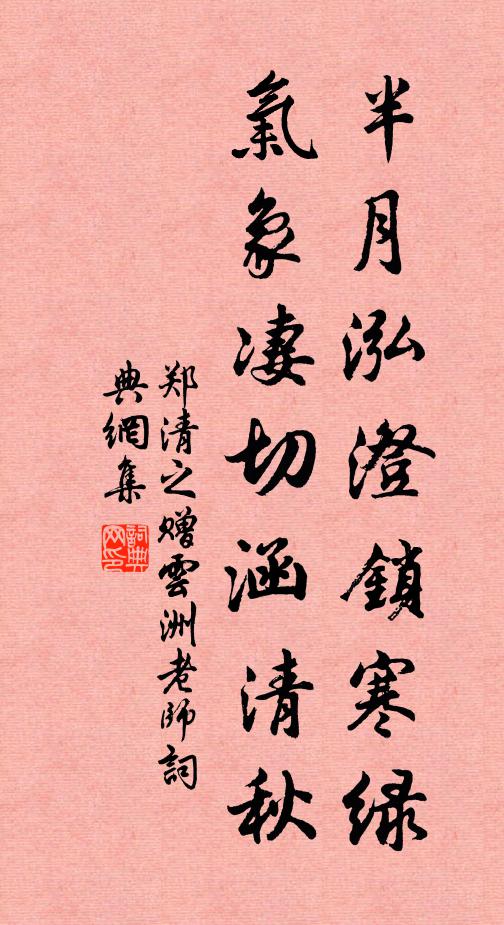 半月泓澄鎖寒緑
氣象凄切涵清秋
郑清之赠雲洲老師詞
典網集
詞典
网印